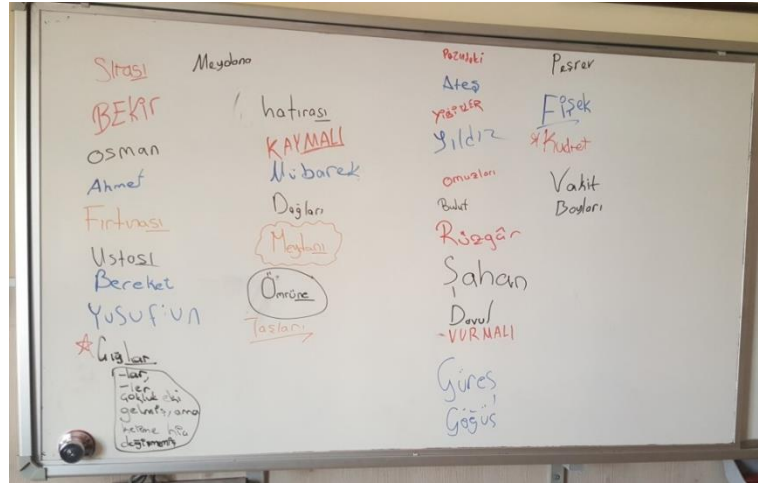 Sırası
Meydana
BEKİR
osman
Ahmet
Fırtınası
Ustası
Bereket
Yusuf'un
Çığlar
-lar,
-ler,
çokluk eki
gelmiş, ama
kelime hiç
değişmemiş
hatırası
KAYMALI
Mübarek
Dağları
Meydanı
Ömrüne
Taşları
Pazudaki
Ateş
YİĞİTLER
Yıldız
omuzları
Bulut
Rüzgâr
Şahan
Davul
-VURMALI
Güreş
Göğüs
Peşrev
Fişek
*Kudret
Vakit
Boyları